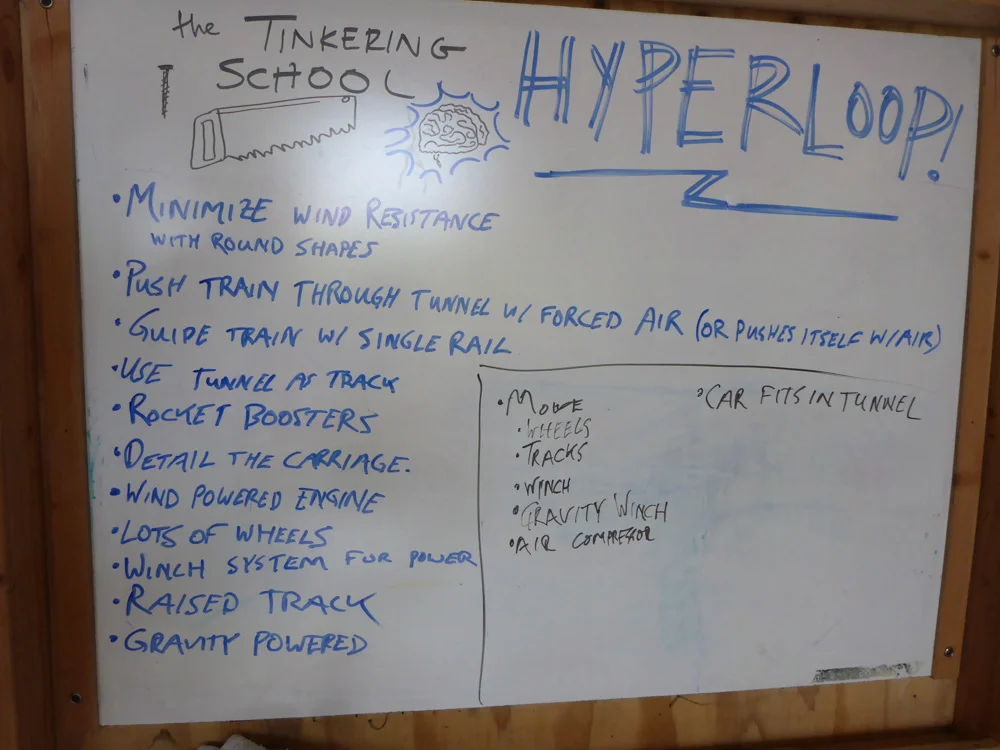 the TINKERING
SCHOOL
HYPERLOOP!
• MINIMIZE WIND RESISTANCE
WITH ROUND SHAPES
• PUSH TRAIN THROUGH TUNNEL W/ FORCED AIR (OR PUSHES ITSELF W/AIR)
• GUIDE TRAIN W/ SINGLE RAIL
• USE TUNNEL AS TRACK
• ROCKET BOOSTERS
• DETAIL THE CARRIAGE.
• WIND POWERED ENGINE
• LOTS OF WHEELS
• WINCH SYSTEM FOR POWER
• RAISED TRACK
• GRAVITY POWERED
• MOVE
• WHEELS
• TRACKS
• WINCH
• GRAVITY WINCH
• AIR COMPRESSOR
• CAR FITS IN TUNNEL